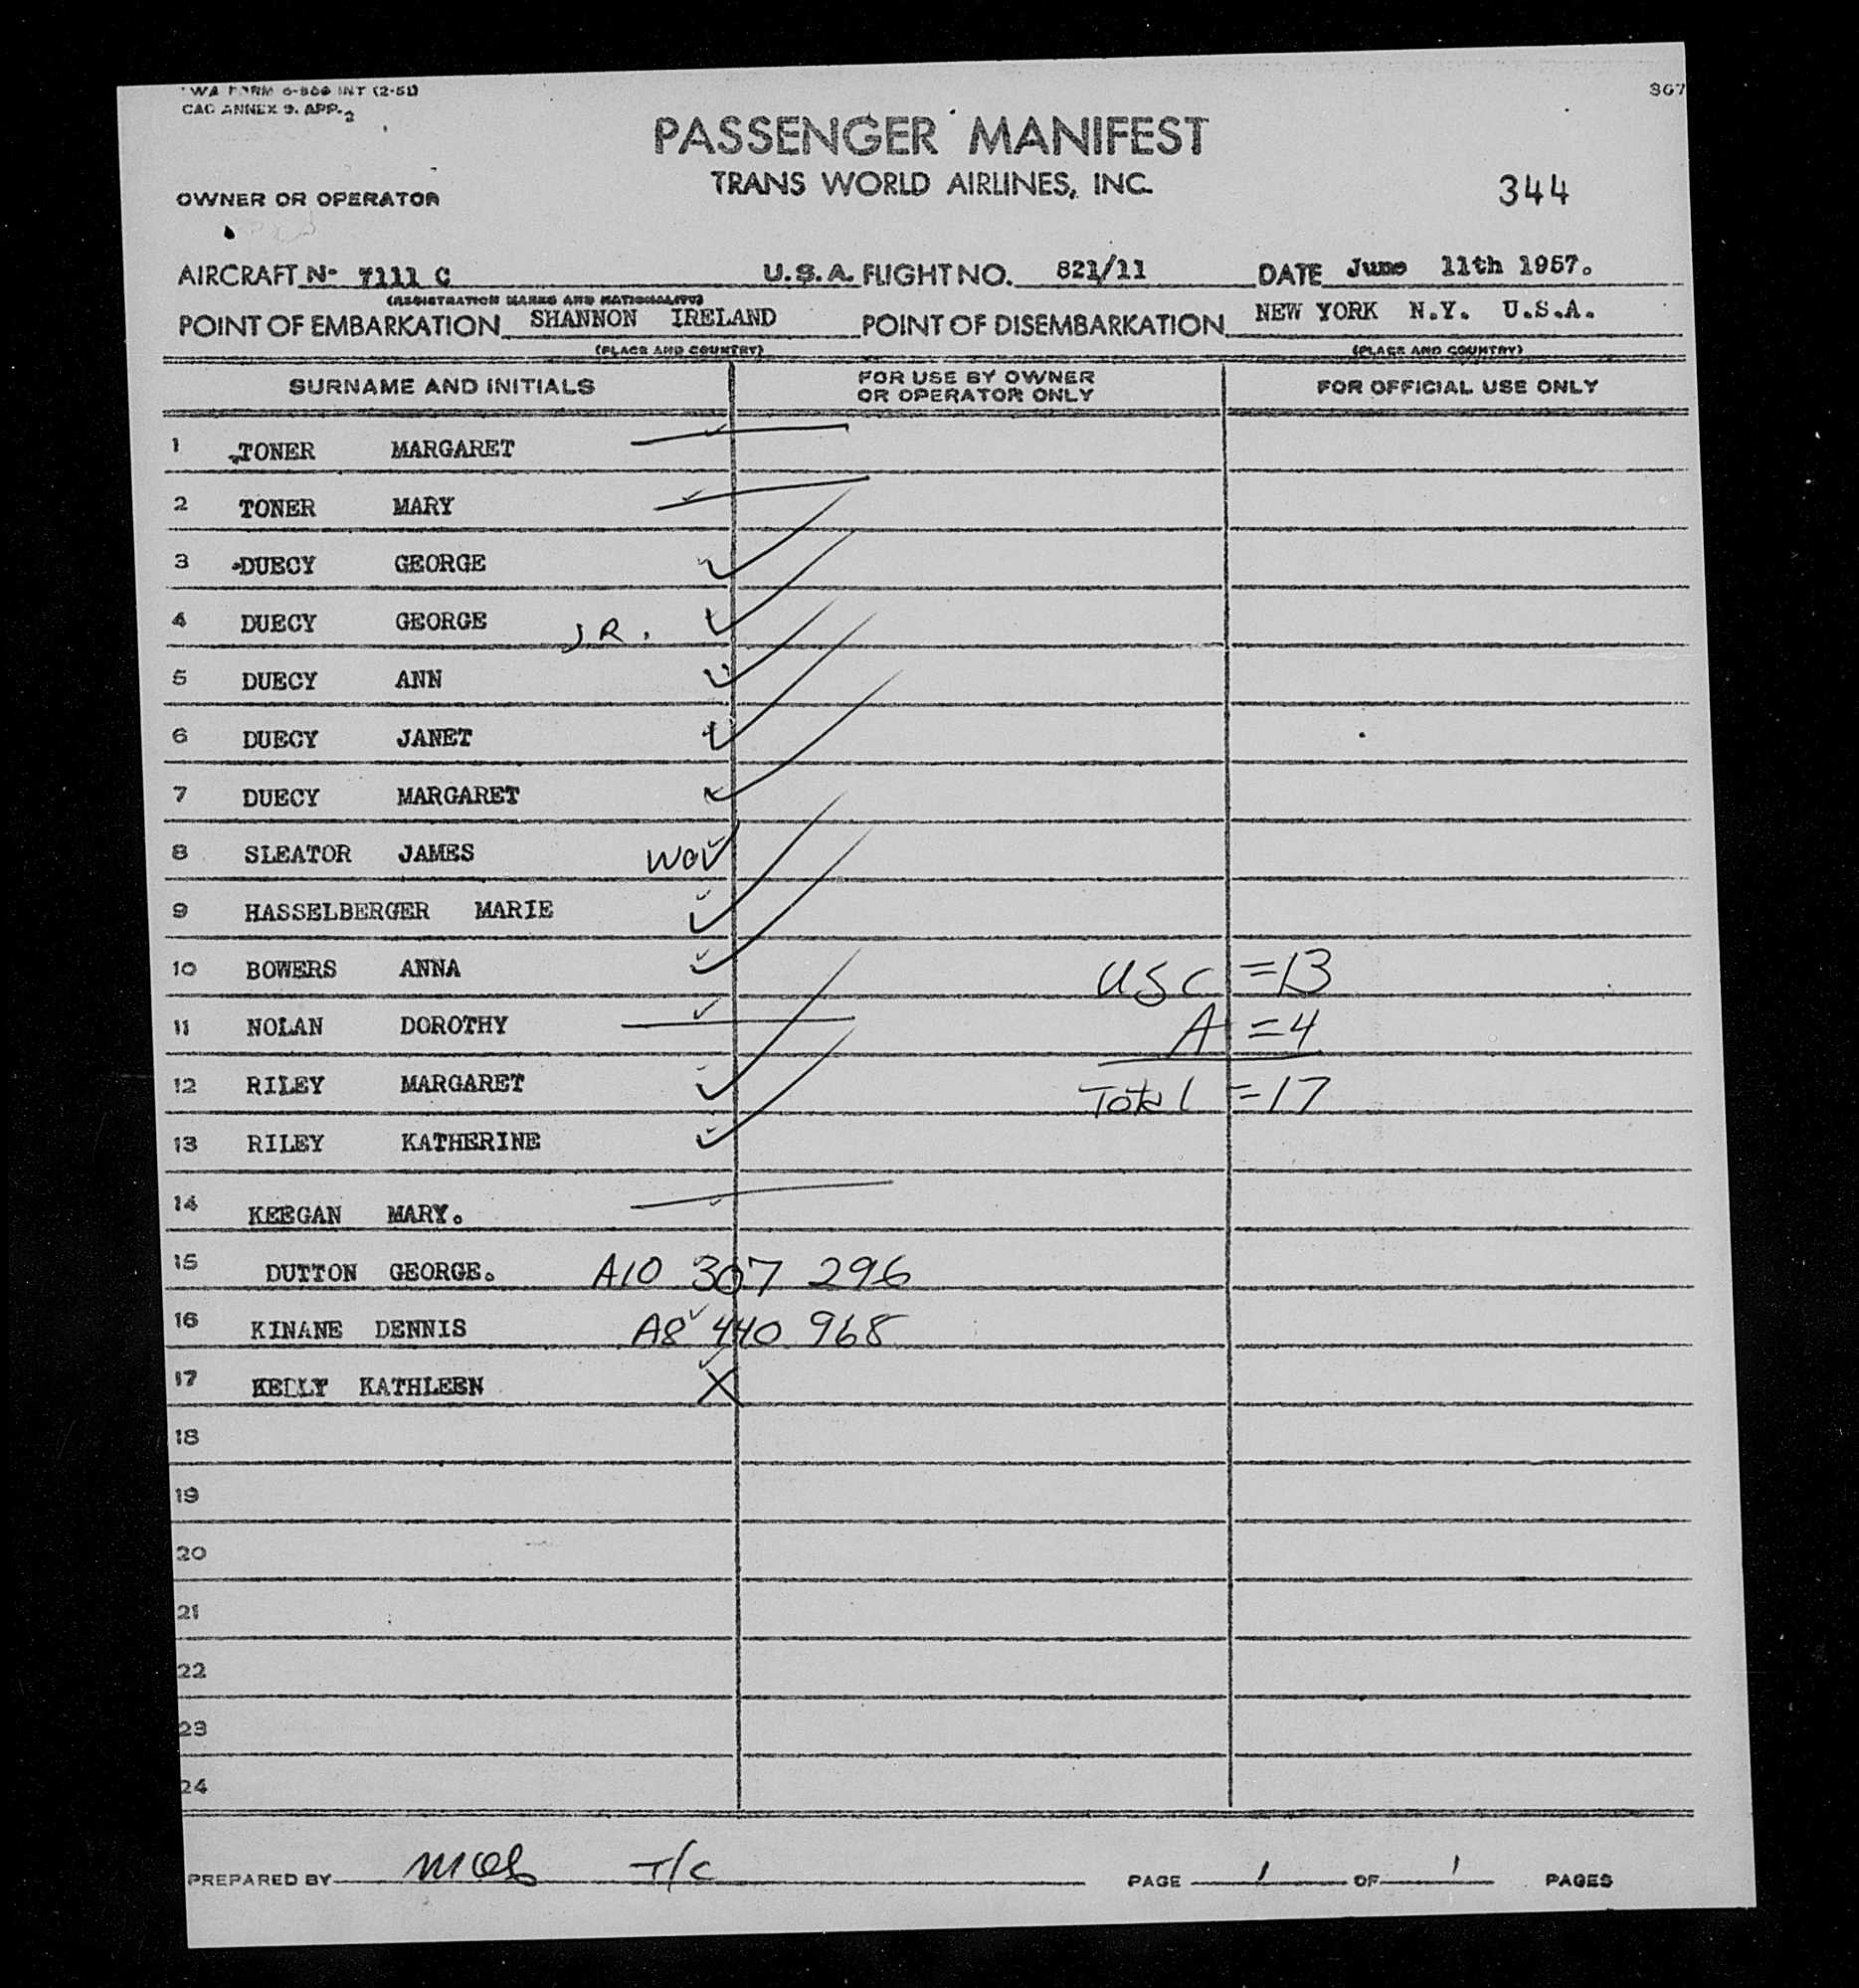 TWA FORM 6-866 INT (2-51)
307
CAO ANNEX 9. APP. 2
PASSENGER MANIFEST
TRANS WORLD AIRLINES, INC.
344
OWNER OR OPERATOR
AIRCRAFT Nº 7111 C U.S.A. FLIGHT NO. 821/11 DATE June 11th 1957.
(REGISTRATION MARKS AND NATIONALITY)
POINT OF EMBARKATION SHANNON IRELAND POINT OF DISEMBARKATION NEW YORK N.Y. U.S.A.
(PLACE AND COUNTRY) (PLACE AND COUNTRY)
SURNAME AND INITIALS FOR USE BY OWNER OR OPERATOR ONLY FOR OFFICIAL USE ONLY
1 TONER MARGARET
2 TONER MARY
3 DUECY GEORGE
4 DUECY GEORGE J.R.
5 DUECY ANN
6 DUECY JANET
7 DUECY MARGARET
8 SLEATOR JAMES
9 HASSELBERGER MARIE
10 BOWERS ANNA USC =13
11 NOLAN DOROTHY A =4
12 RILEY MARGARET Total =17
13 RILEY KATHERINE
14 KEEGAN MARY.
15 DUTTON GEORGE. A10 307 296
16 KINANE DENNIS A8 440 968
17 KELLY KATHLEEN X
18
19
20
21
22
23
24
PREPARED BY T/C PAGE 1 OF 1 PAGES